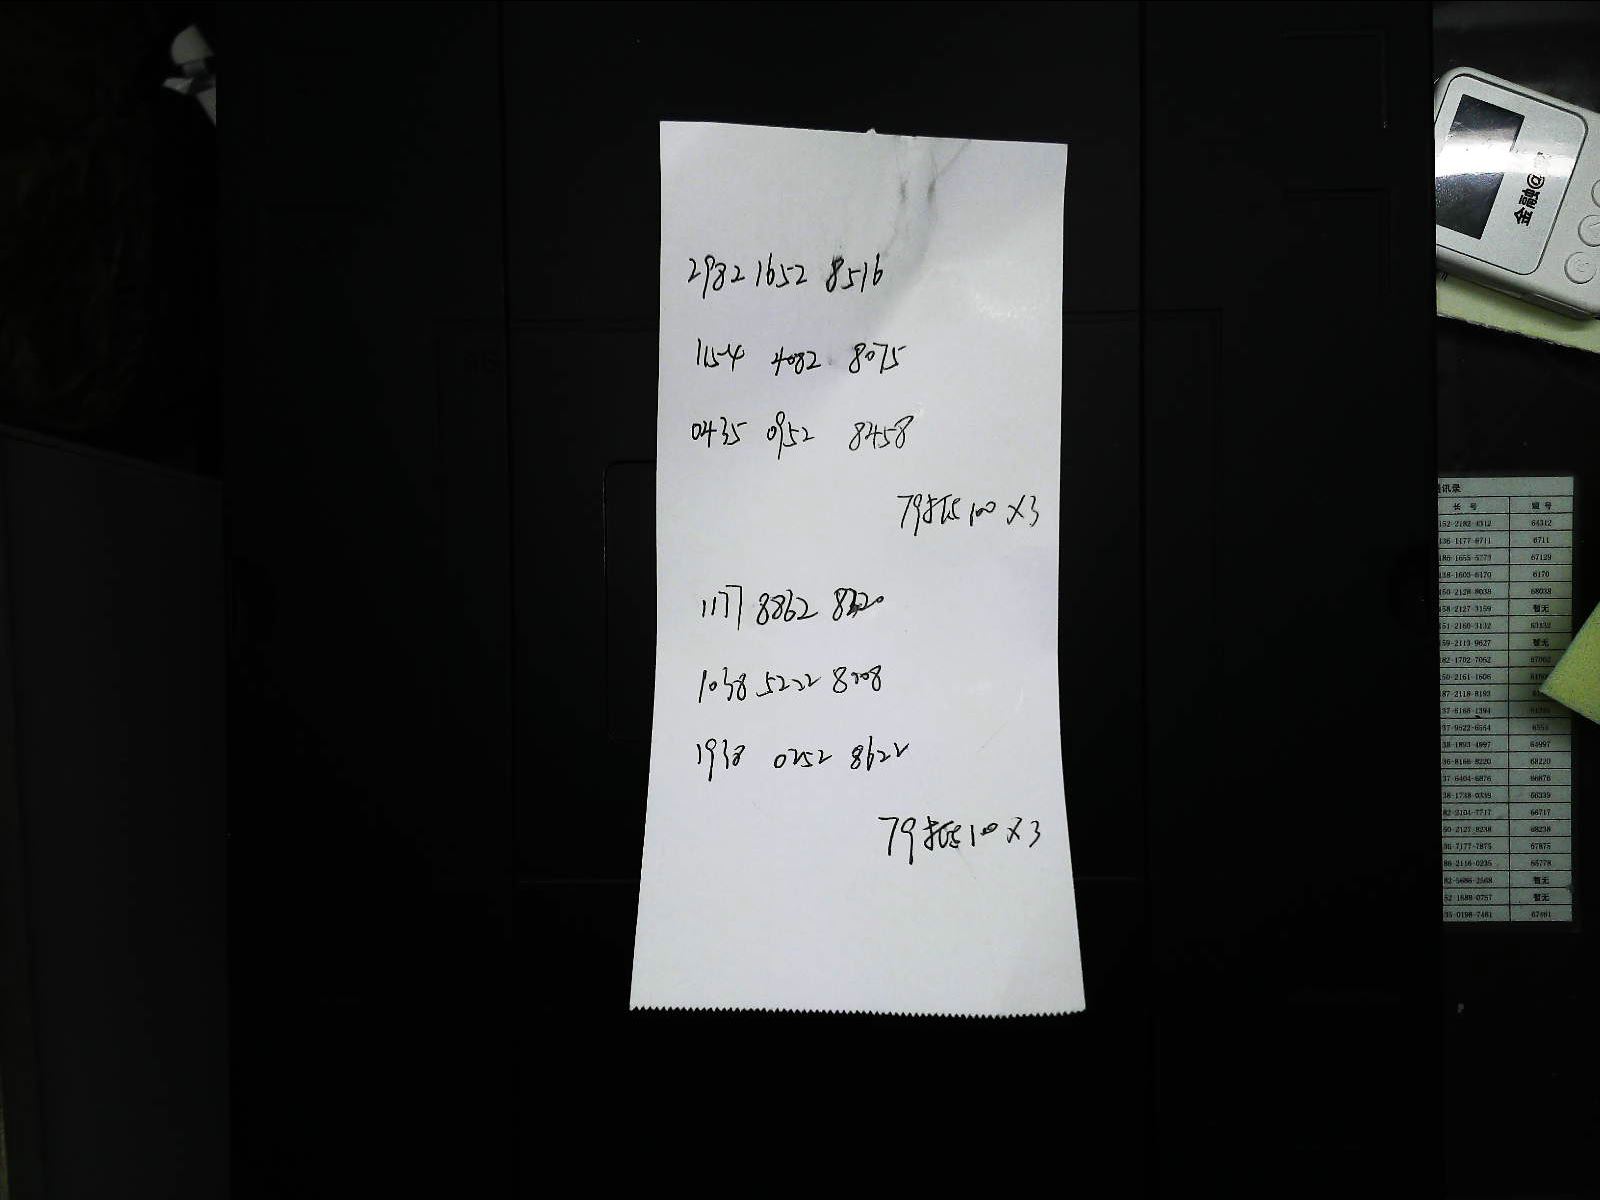 2982 1652 8516
1154 4082 8075
0435 0952 8458
79抵100 X3
1177 8862 8320
1038 5222 8208
1938 0252 8622
79抵100 X3
金融@
通讯录
长 号 短 号
152-2182-4312 64312
136-1177-6711 6711
186-1655-5773 67129
138-1603-6170 6170
150-2128-8038 68038
158-2127-3159 暂无
151-2160-3132 63132
159-2113-9627 暂无
182-1702-7062 67062
150-2161-1606
187-2118-8193
137-6166-1394
137-9522-6554 6554
138-1893-4997 64997
136-8166-8220 68220
137-6404-6876 66876
138-1738-0339 56339
182-2104-7717 66717
150-2127-8238 68238
136-7177-7875 67875
186-2116-0235 65778
182-5686-2568 暂无
152-1688-0757 暂无
135-0198-7461 67461